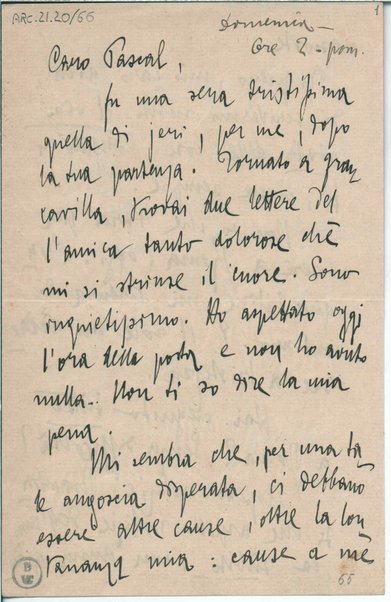 ARC.21.20/66
1
Domenica –
Ore 2. pom.
Caro Pascal,
fu una sera tristissima
quella di jeri, per me, dopo
la tua partenza. Tornato a Fran
cavilla, trovai due lettere del
l'amica tanto dolorose che
mi si strinse il cuore. Sono
inquietissimo. Ho aspettato oggi
l'ora della posta e non ho avuto
nulla. Non ti so dire la mia
pena.
Mi sembra che, per una ta
le angoscia disperata, ci debbano
essere altre cause, oltre la lon
tananza mia: cause a me
65